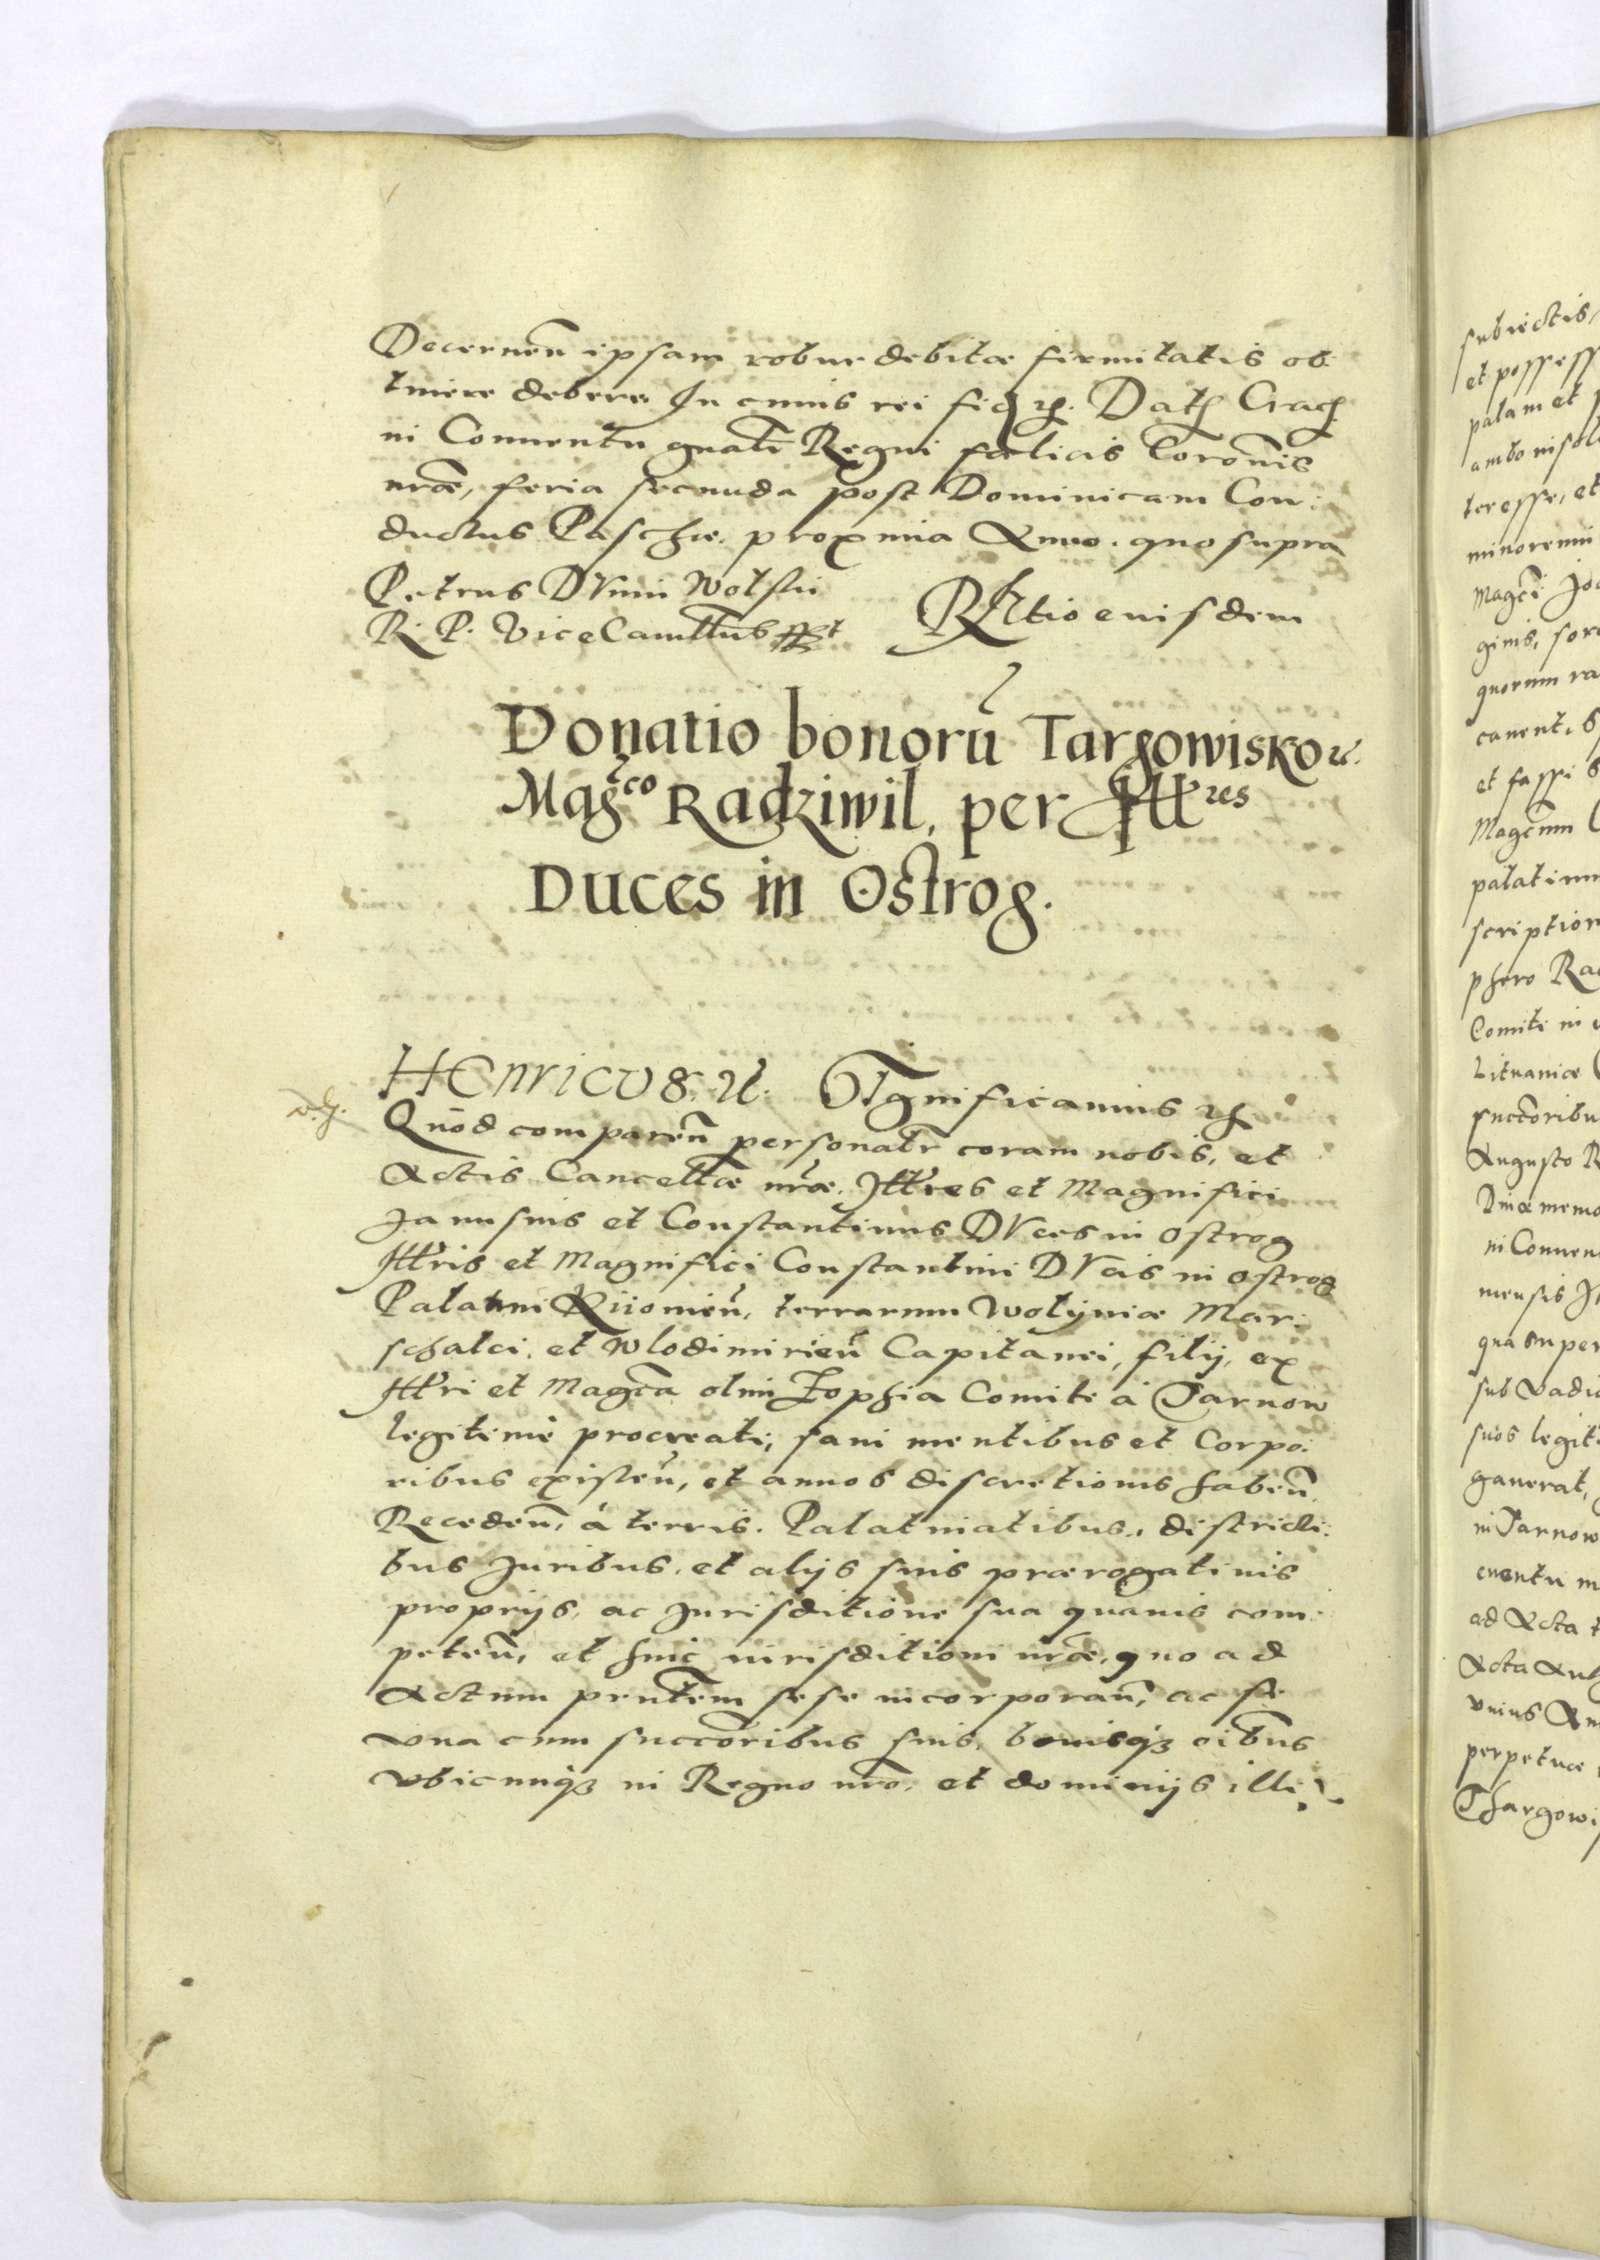 Decernen̄ ipsam robur debitæ firmitatis ob:
tinere debere. In cuius rei fid etc. Dat Crac
in Conuentu gnali Regni fœlicis Coronis
nræ, feria secunda post Dominicam Con:
ductus Paschæ proxima Anno quo supra
Petrus DVnin Wolski
R. P. ViceCancllrius sst
Rltio eiusdem
Donatio bonorū Targowisko etc.
Magco Radziwil, per Illres
Duces in Ostrog.
HENRICVS etc. Significamus etc
Quod comparen̄ personalr coram nobis, et
Actis Cancellæ nræ, Illres et Magnifici
Janussius et Constantinus DVces in Ostrog
Illris et Magnifici Constantini DVcis in Ostrog
Palatini Kiiouien̄, terrarum Wolyniæ Mar:
schalci, et Wlodimirien̄ Capitanei, filij, ex
Illri et Magca olim Zophia Comite à Tarnow
legitimè procreati, sani mentibus et Corpo:
ribus existen̄, et annos discretionis haben̄,
Receden̄, à terris, Palatinatibus, districti:
bus Juribus, et alijs suis prærogatiuis
proprijs, ac Jurisditione sua quauis com:
peten̄, et huic iurisditioni nræ, quo ad
Actum prntem sese incorporan̄, ac se
vna cum succoribus suis, bonisq3 oibus
vbicunq3 in Regno nro, et dominijs illi
subiectis,
et possess
palam et
ambo insol
teresse, et
minorenni
Magci Jo
ginis, soro
quorum ra
cauent, 
et fassi s
Magcum
palatinu
scription
phoro Ra
Comiti in
Lituaniæ
succoribu
Augusto R
Diuæ memo
in Conuen
mensis J
qua super
sub vadio
suos legit
gauerat,
in Tarnow
euentu
ad Acta t
Acta
vnius
perpetuæ
Thargowi